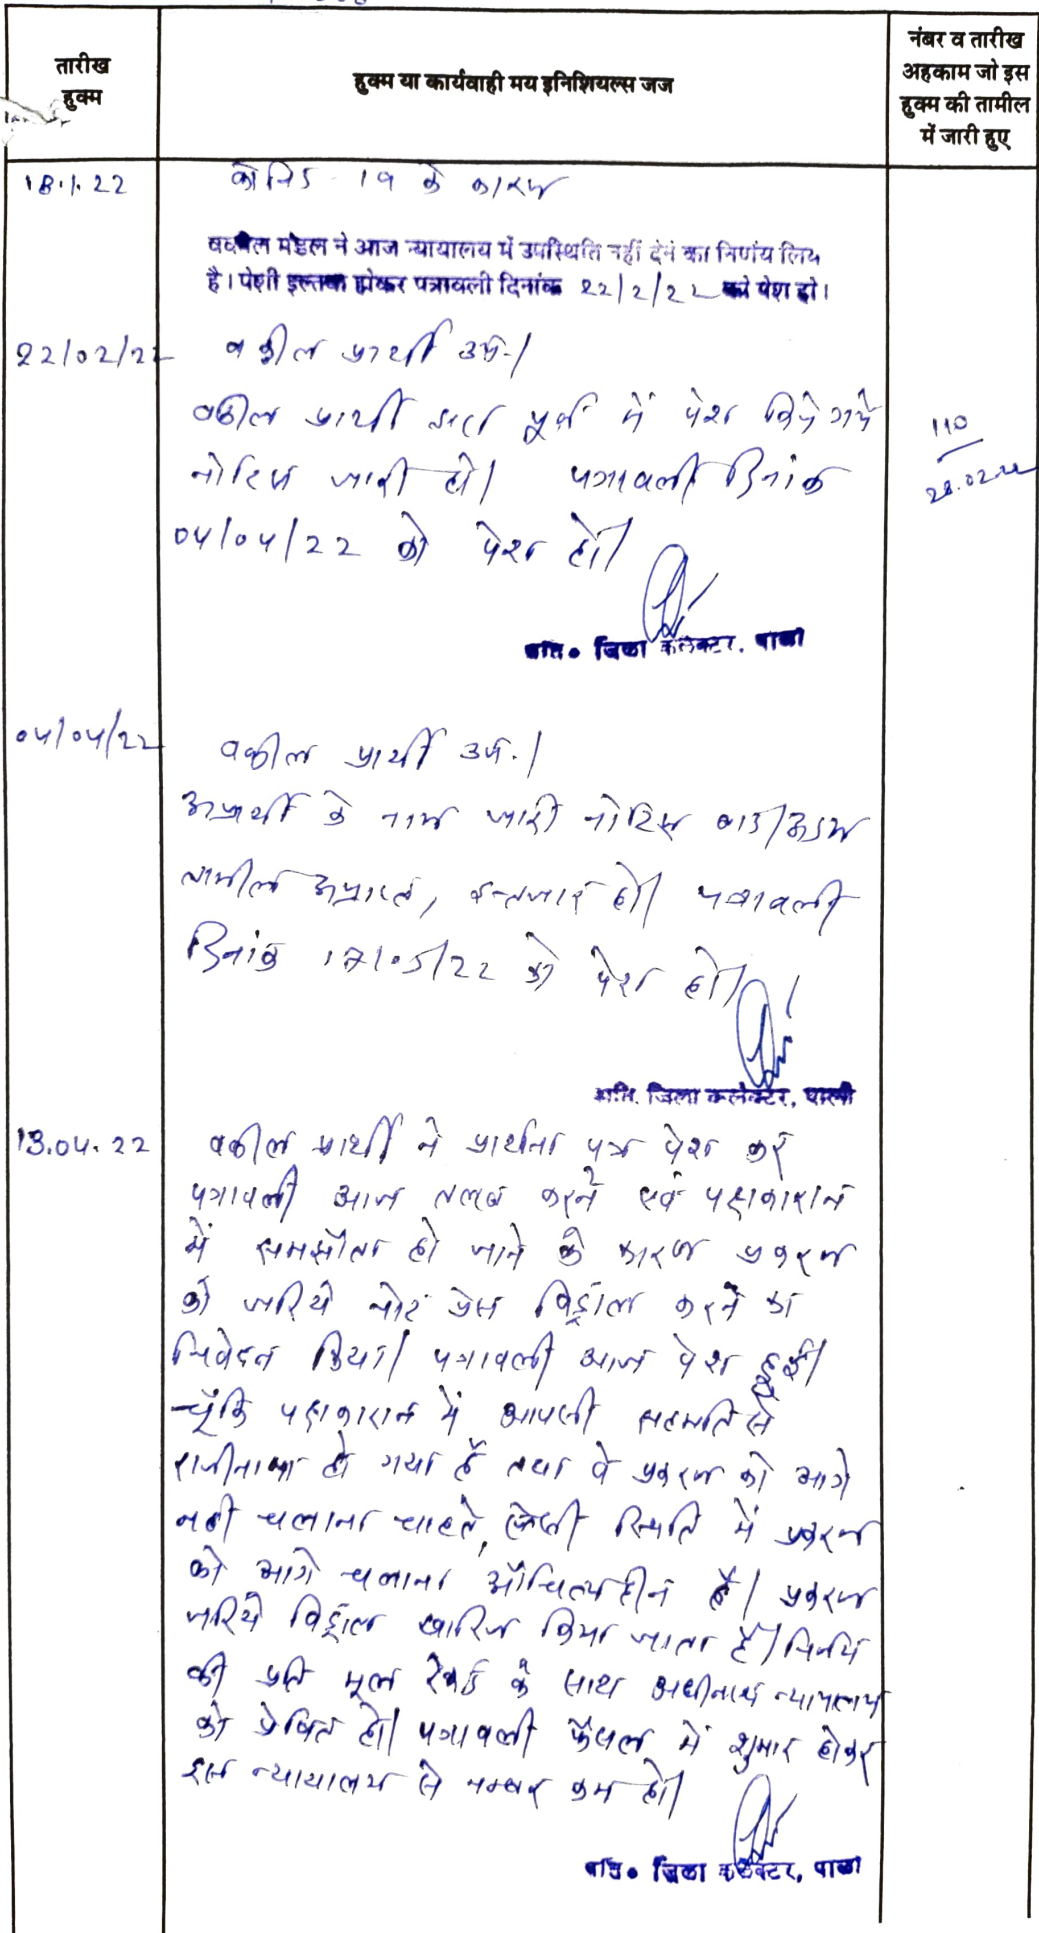 तारीख हुक्म
हुक्म या कार्यवाही मय इनिशियल्स जज
नंबर व तारीख अहकाम जो इस हुक्म की तामील में जारी हुए
18.1.22
कोविड - 19 के कारण
वकील मंडल ने आज न्यायालय में उपस्थिति नहीं देने का निर्णय लिय
है। पेशी इल्तवा होकर पत्रावली दिनांक 22/2/22 को पेश हो।
22/02/22 वकील प्रार्थी उप.।
वकील प्रार्थी द्वारा पूर्व में पेश किये गये
नोटिस जारी हो। पत्रावली दिनांक
04/04/22 को पेश हो।
110
28.02.22
अति॰ जिला कलेक्टर, पाली
04/04/22 वकील प्रार्थी उप.।
अप्रार्थी के नाम जारी नोटिस बाद/अदम
तामील अप्राप्त, इन्तजार हो। पत्रावली
दिनांक 17/05/22 को पेश हो।
अति. जिला कलेक्टर, पाली
13.04.22 वकील प्रार्थी ने प्रार्थना पत्र पेश कर
पत्रावली आज तलब करने एवं पक्षकारान
में समझौता हो जाने के कारण प्रकरण
को जरिये नोट प्रेस विड्रोल करने का
निवेदन किया। पत्रावली आज पेश हुई।
चूँकि पक्षकारान में आपसी सहमति से
राजीनामा हो गया है तथा वे प्रकरण को आगे
नही चलाना चाहते, ऐसी स्थिति में प्रकरण
को आगे चलाना औचित्यहीन है। प्रकरण
जरिये विड्रोल खारिज किया जाता है। निर्णय
की प्रति मूल रेकर्ड के साथ अधीनस्थ न्यायालय
को प्रेषित हो। पत्रावली फैसल में शुमार होकर
इस न्यायालय से नम्बर कम हो।
अति॰ जिला कलेक्टर, पाली